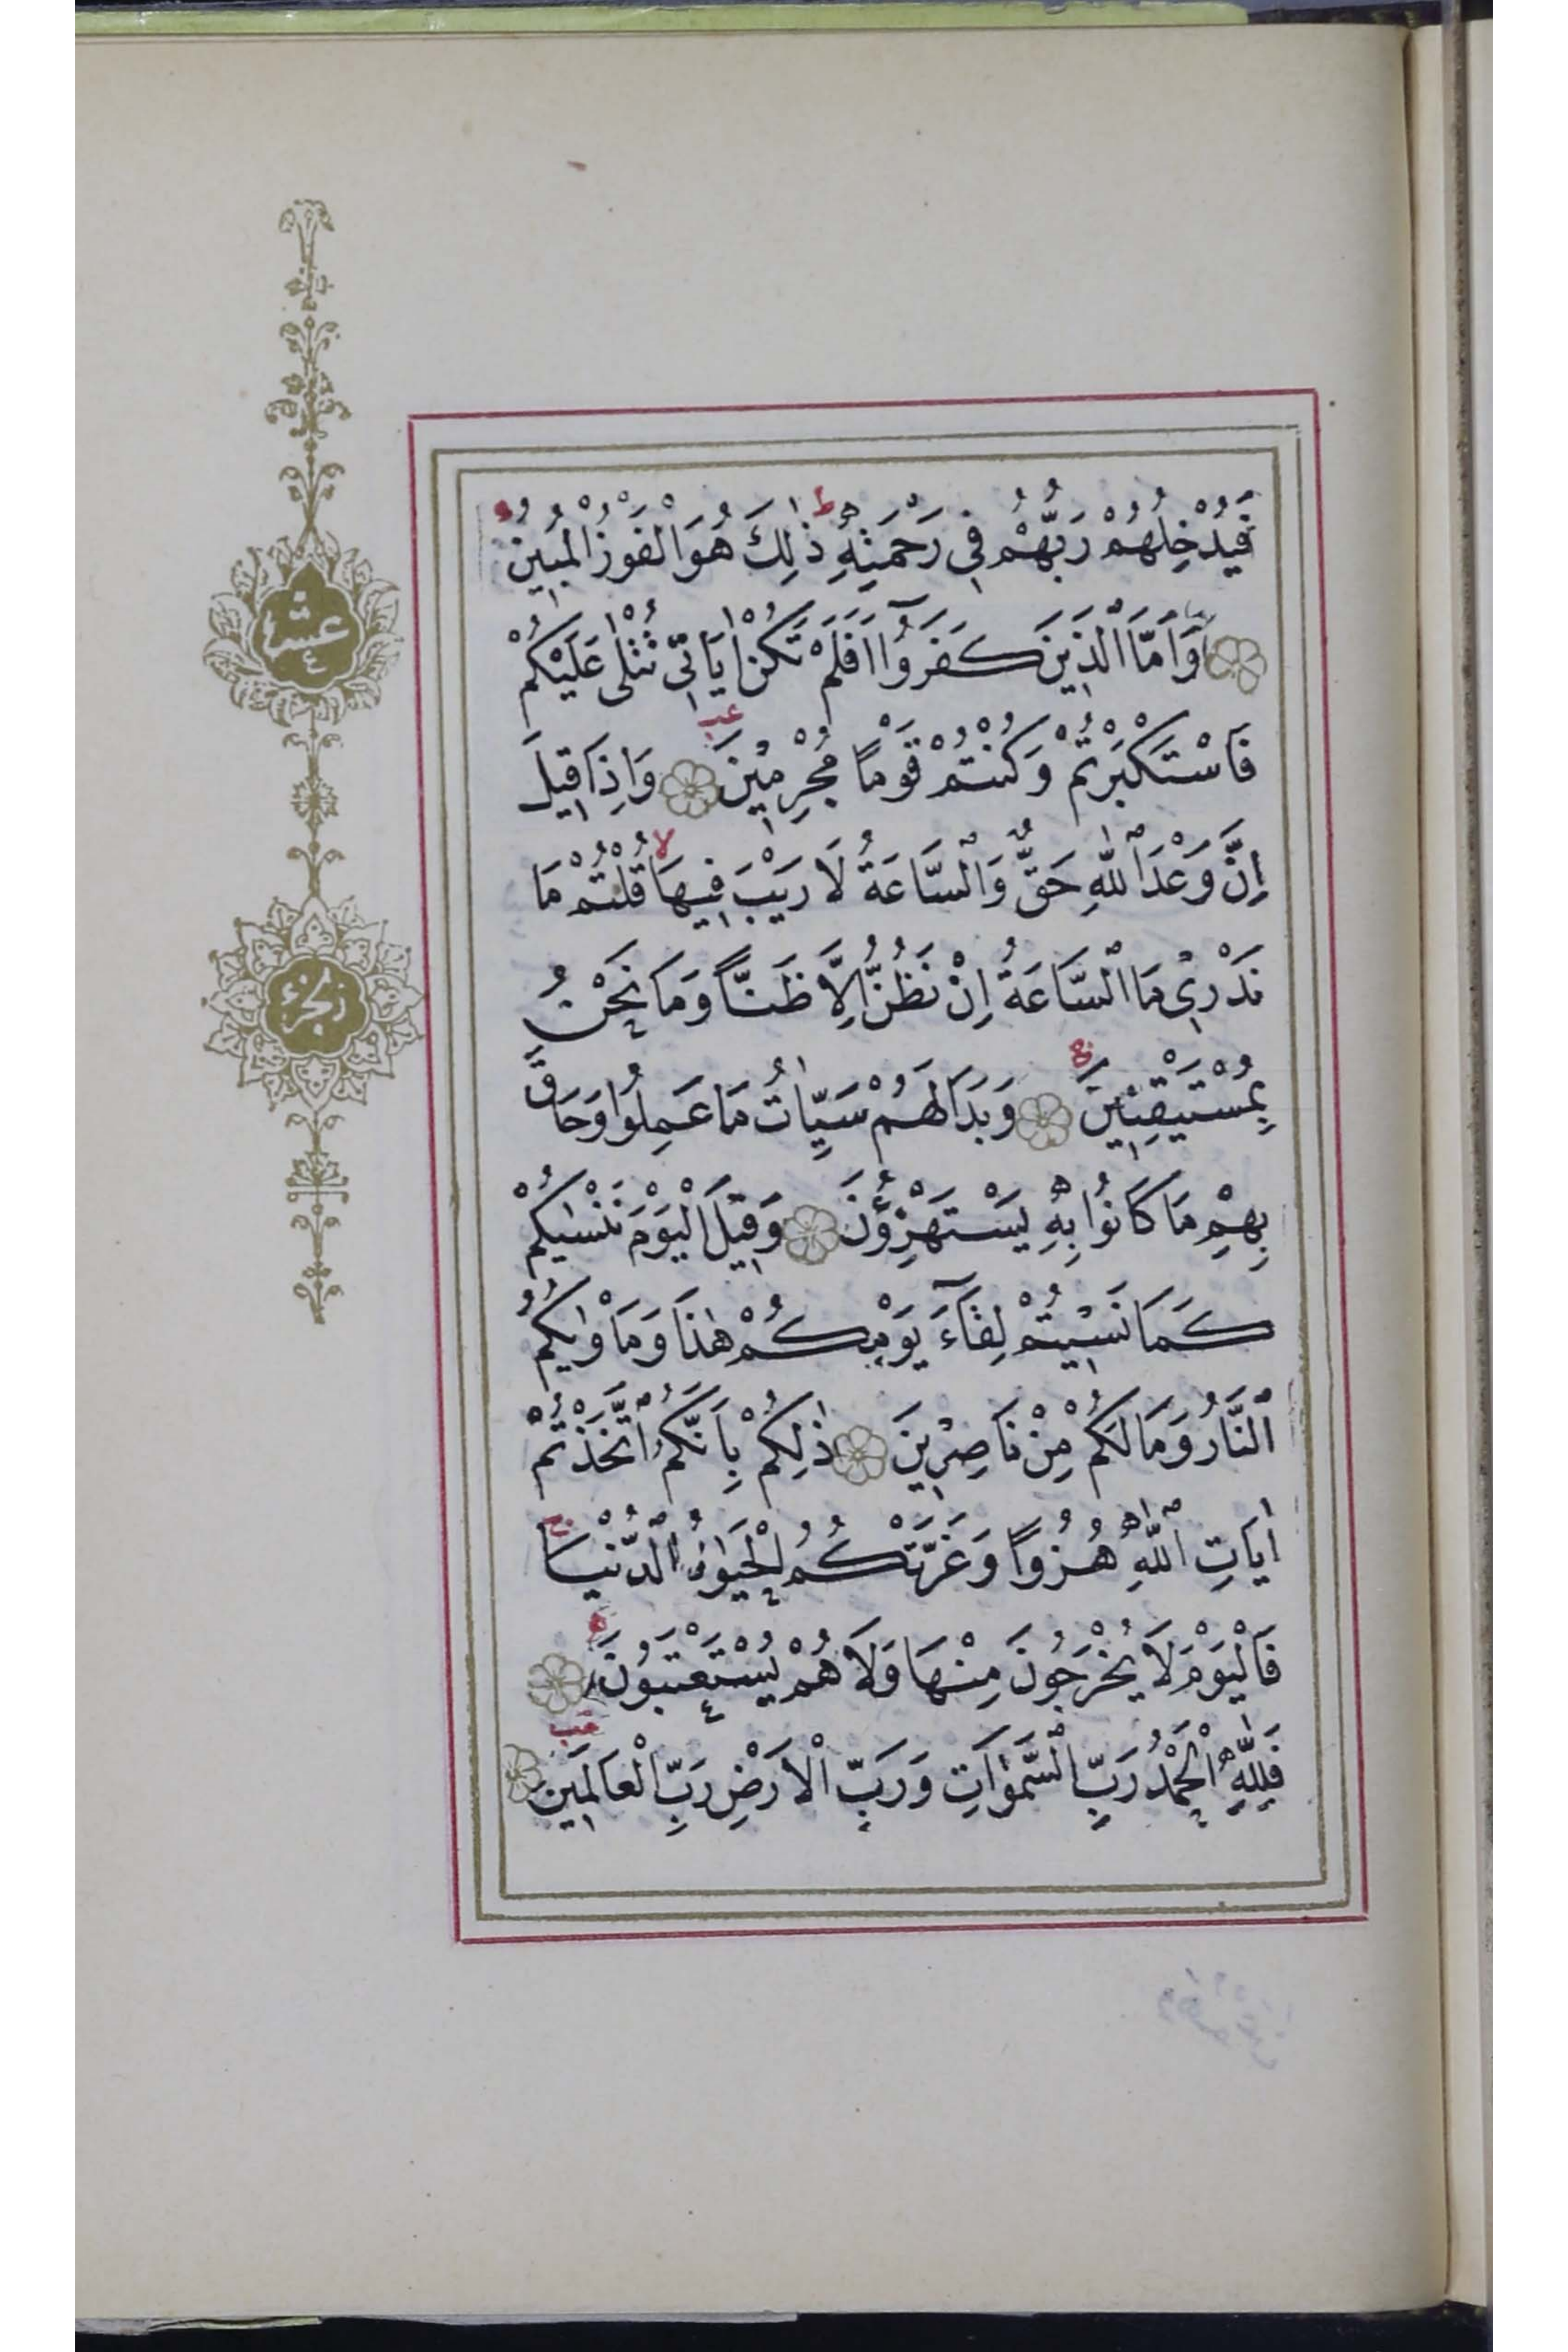 فَيُدْخِلُهُمْ رَبُّهُمْ فِي رَحْمَتِهِ ط ذٰلِكَ هُوَ الْفَوْزُ الْمُبِينُ
وَاَمَّا الَّذِينَ كَفَرُوٓا اَفَلَمْ تَكُنْ اٰيَاتِي تُتْلٰى عَلَيْكُمْ
فَاسْتَكْبَرْتُمْ وَكُنْتُمْ قَوْمًا مُجْرِمِينَ عب وَاِذَا قِيلَ
اِنَّ وَعْدَ اللّٰهِ حَقٌّ وَالسَّاعَةُ لَا رَيْبَ فِيهَا لا قُلْتُمْ مَا
نَدْرِي مَا السَّاعَةُ اِنْ نَظُنُّ اِلَّا ظَنًّا وَمَا نَحْنُ
بِمُسْتَيْقِنِينَ وَبَدَا لَهُمْ سَيِّاٰتُ مَا عَمِلُوا وَحَاقَ
بِهِمْ مَا كَانُوا بِهِ يَسْتَهْزِؤُنَ وَقِيلَ الْيَوْمَ نَنْسٰيكُمْ
كَمَا نَسِيتُمْ لِقَآءَ يَوْمِكُمْ هٰذَا وَمَاْوٰيكُمُ
النَّارُ وَمَا لَكُمْ مِنْ نَاصِرِينَ ذٰلِكُمْ بِاَنَّكُمُ اتَّخَذْتُمْ
اٰيَاتِ اللّٰهِ هُزُوًا وَغَرَّتْكُمُ الْحَيٰوةُ الدُّنْيَا ج
فَالْيَوْمَ لَا يُخْرَجُونَ مِنْهَا وَلَا هُمْ يُسْتَعْتَبُونَ
فَلِلّٰهِ الْحَمْدُ رَبِّ السَّمٰوَاتِ وَرَبِّ الْاَرْضِ رَبِّ الْعَالَمِينَ
عشر
٤